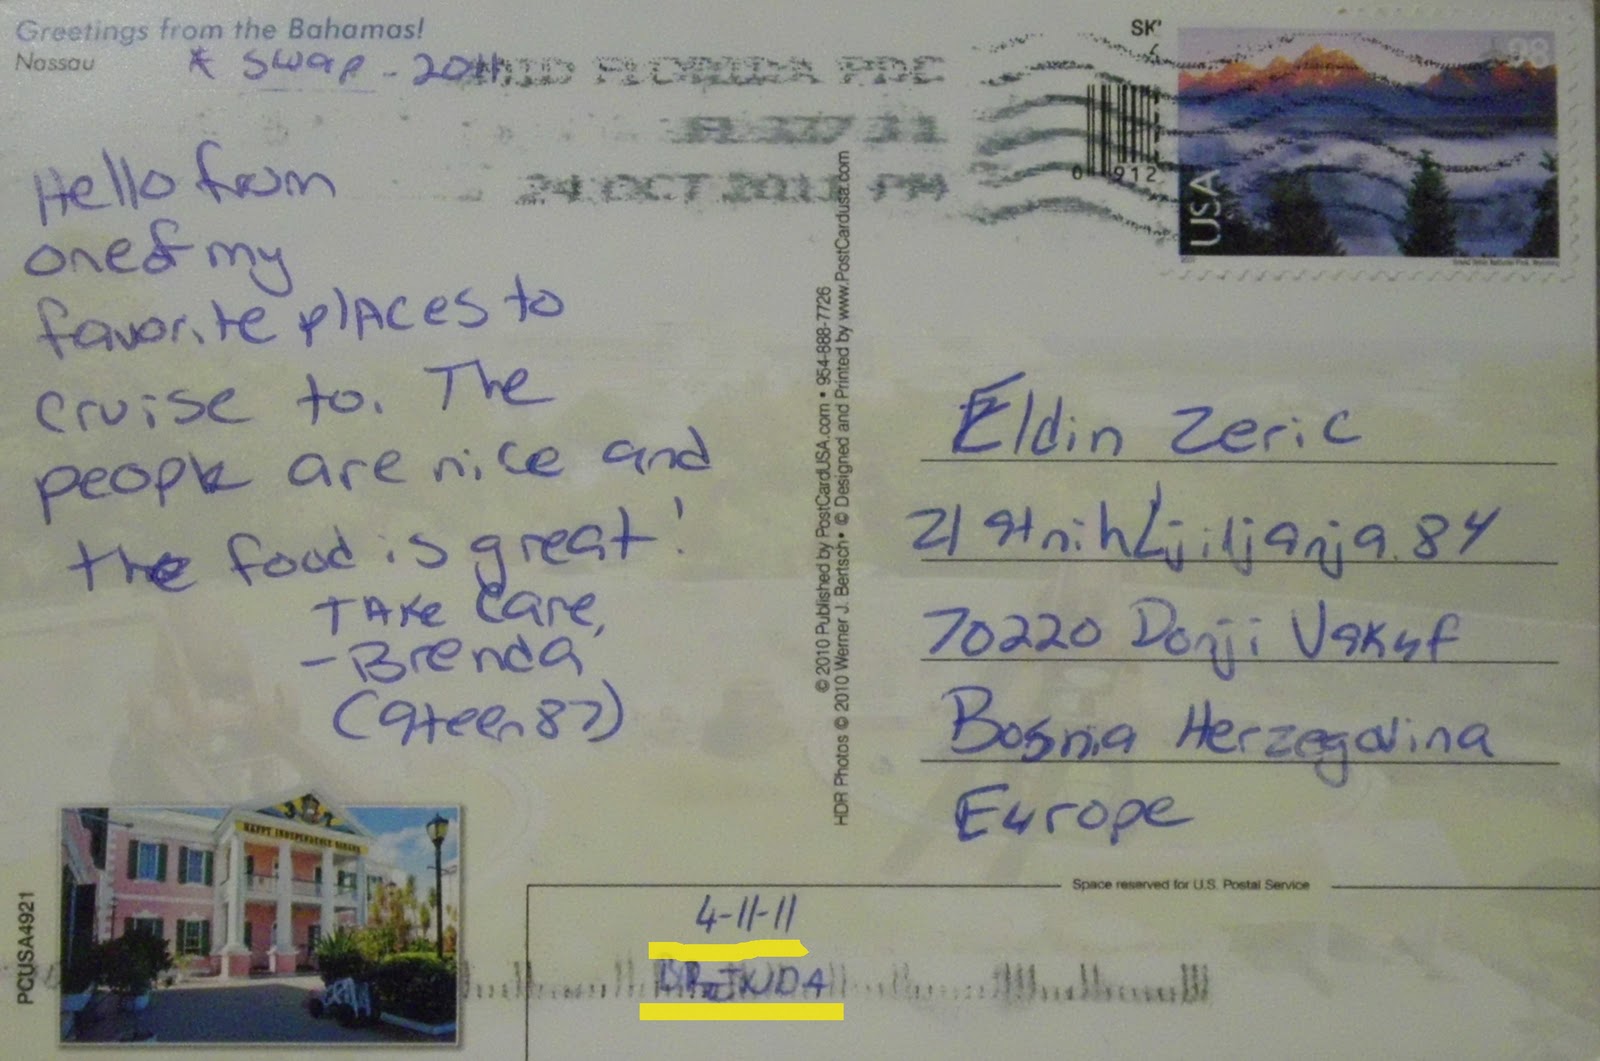 Greetings from the Bahamas!
Nassau
* SWAP - 2011
MID FLORIDA PDC
24 OCT 2011 PM
SK'
0 912
98
USA
Hello from
one of my
favorite places to
cruise to. The
people are nice and
the food is great!
TAKE care,
- Brenda
© 2010 Published by PostCardUSA.com • 954-888-7726
HDR Photos © 2010 Werner J. Bertsch • © Designed and Printed by www.PostCardusa.com
Eldin Zeric
Ljiljanja 84
70220 Donji Vakuf
Bosnia Herzegovina
Europe
PCUSA4921
37
HAPPY INDEPENDENCE
Space reserved for U.S. Postal Service
4-11-11